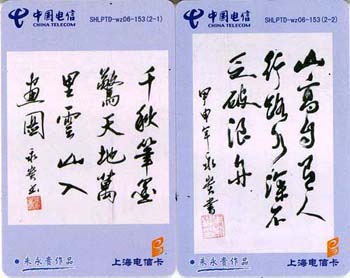 中国电信
SHLPTD-wz06-153(2-1)
千秋筆墨
驚天地萬
里雲山入
畫圖
朱永贵作品
上海电信卡
中国电信
SHLPTD-wz06-153(2-2)
山高自有人
行路水深不
乏破浪舟
甲申年永贵書
朱永贵作品
上海电信卡